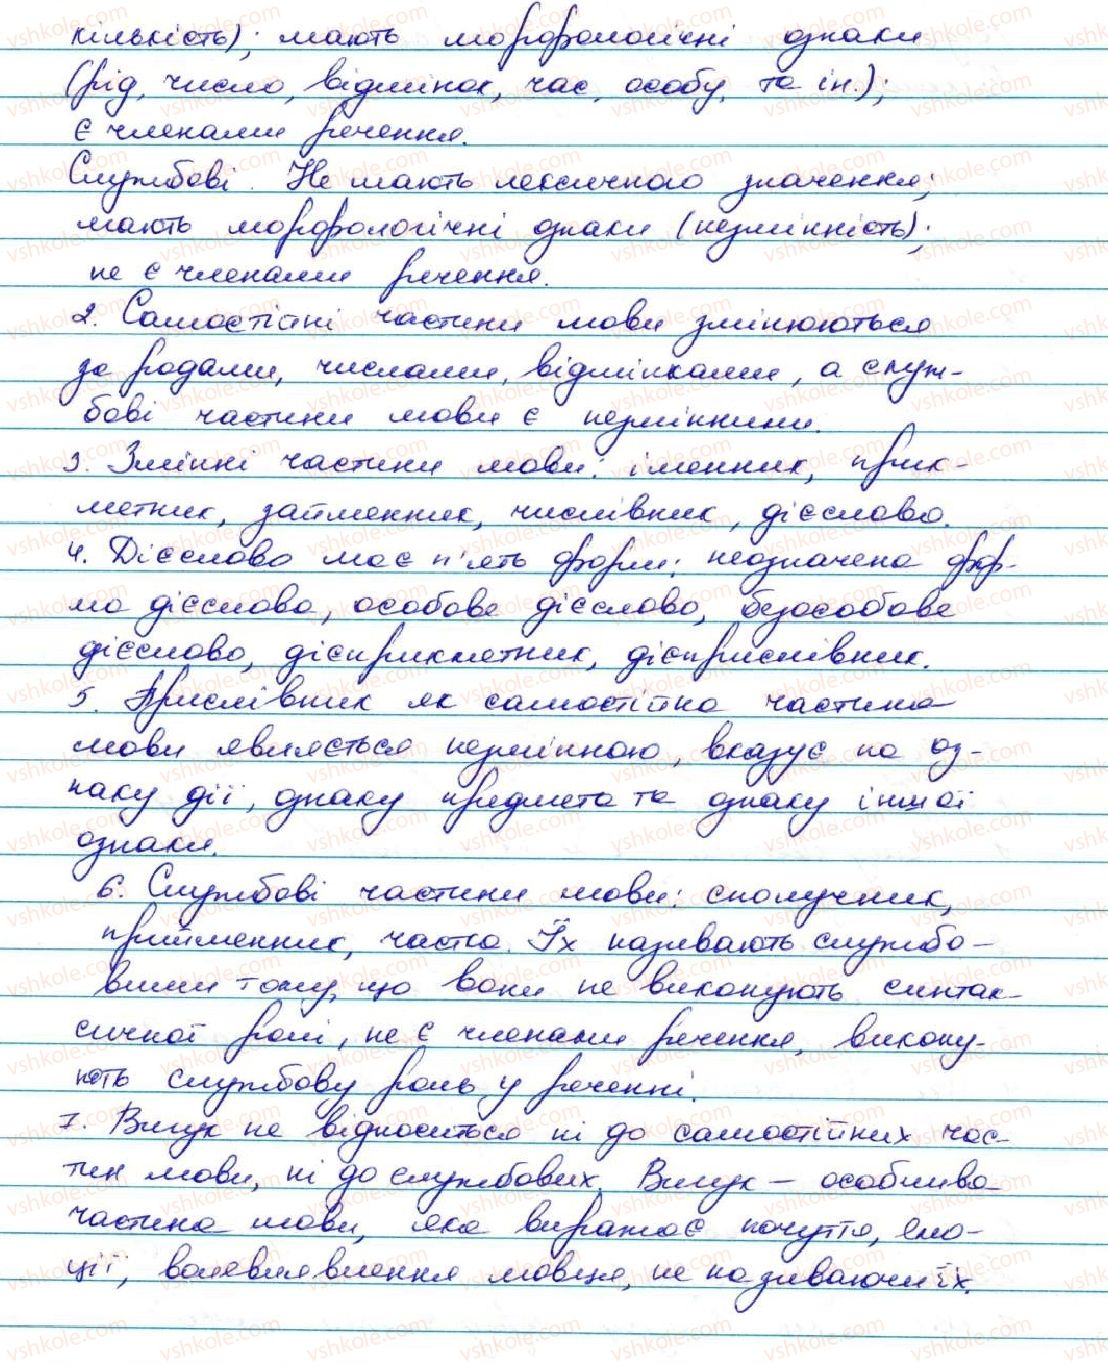 кількість); мають морфологічні ознаки
(рід, число, відмінок, час, особу, та ін.);
є членами речення.
Службові. Не мають лексичного значення;
мають морфологічні ознаки (незмінність);
не є членами речення.
2. Самостійні частини мови змінюються
за родами, числами, відмінками, а служ-
бові частини мови є незмінними.
3. Змінні частини мови: іменник, прик-
метник, займенник, числівник, дієслово.
4. Дієслово має п'ять форм: неозначена фор-
ма дієслова, особове дієслово, безособове
дієслово, дієприкметник, дієприслівник.
5. Прислівник як самостійна частина
мови являється незмінною, вказує на оз-
наку дії, ознаку предмета та ознаку іншої
ознаки.
6. Службові частини мови: сполучник,
прийменник, частка. Їх називають службо-
вими тому, що вони не виконують синтак-
сичної ролі, не є членами речення, викону-
ють службову роль у реченні.
7. Вигук не відноситься ні до самостійних час-
тин мови, ні до службових. Вигук – особлива
частина мови, яка виражає почуття, емо-
ції, волевиявлення мовця, не називаючи їх.